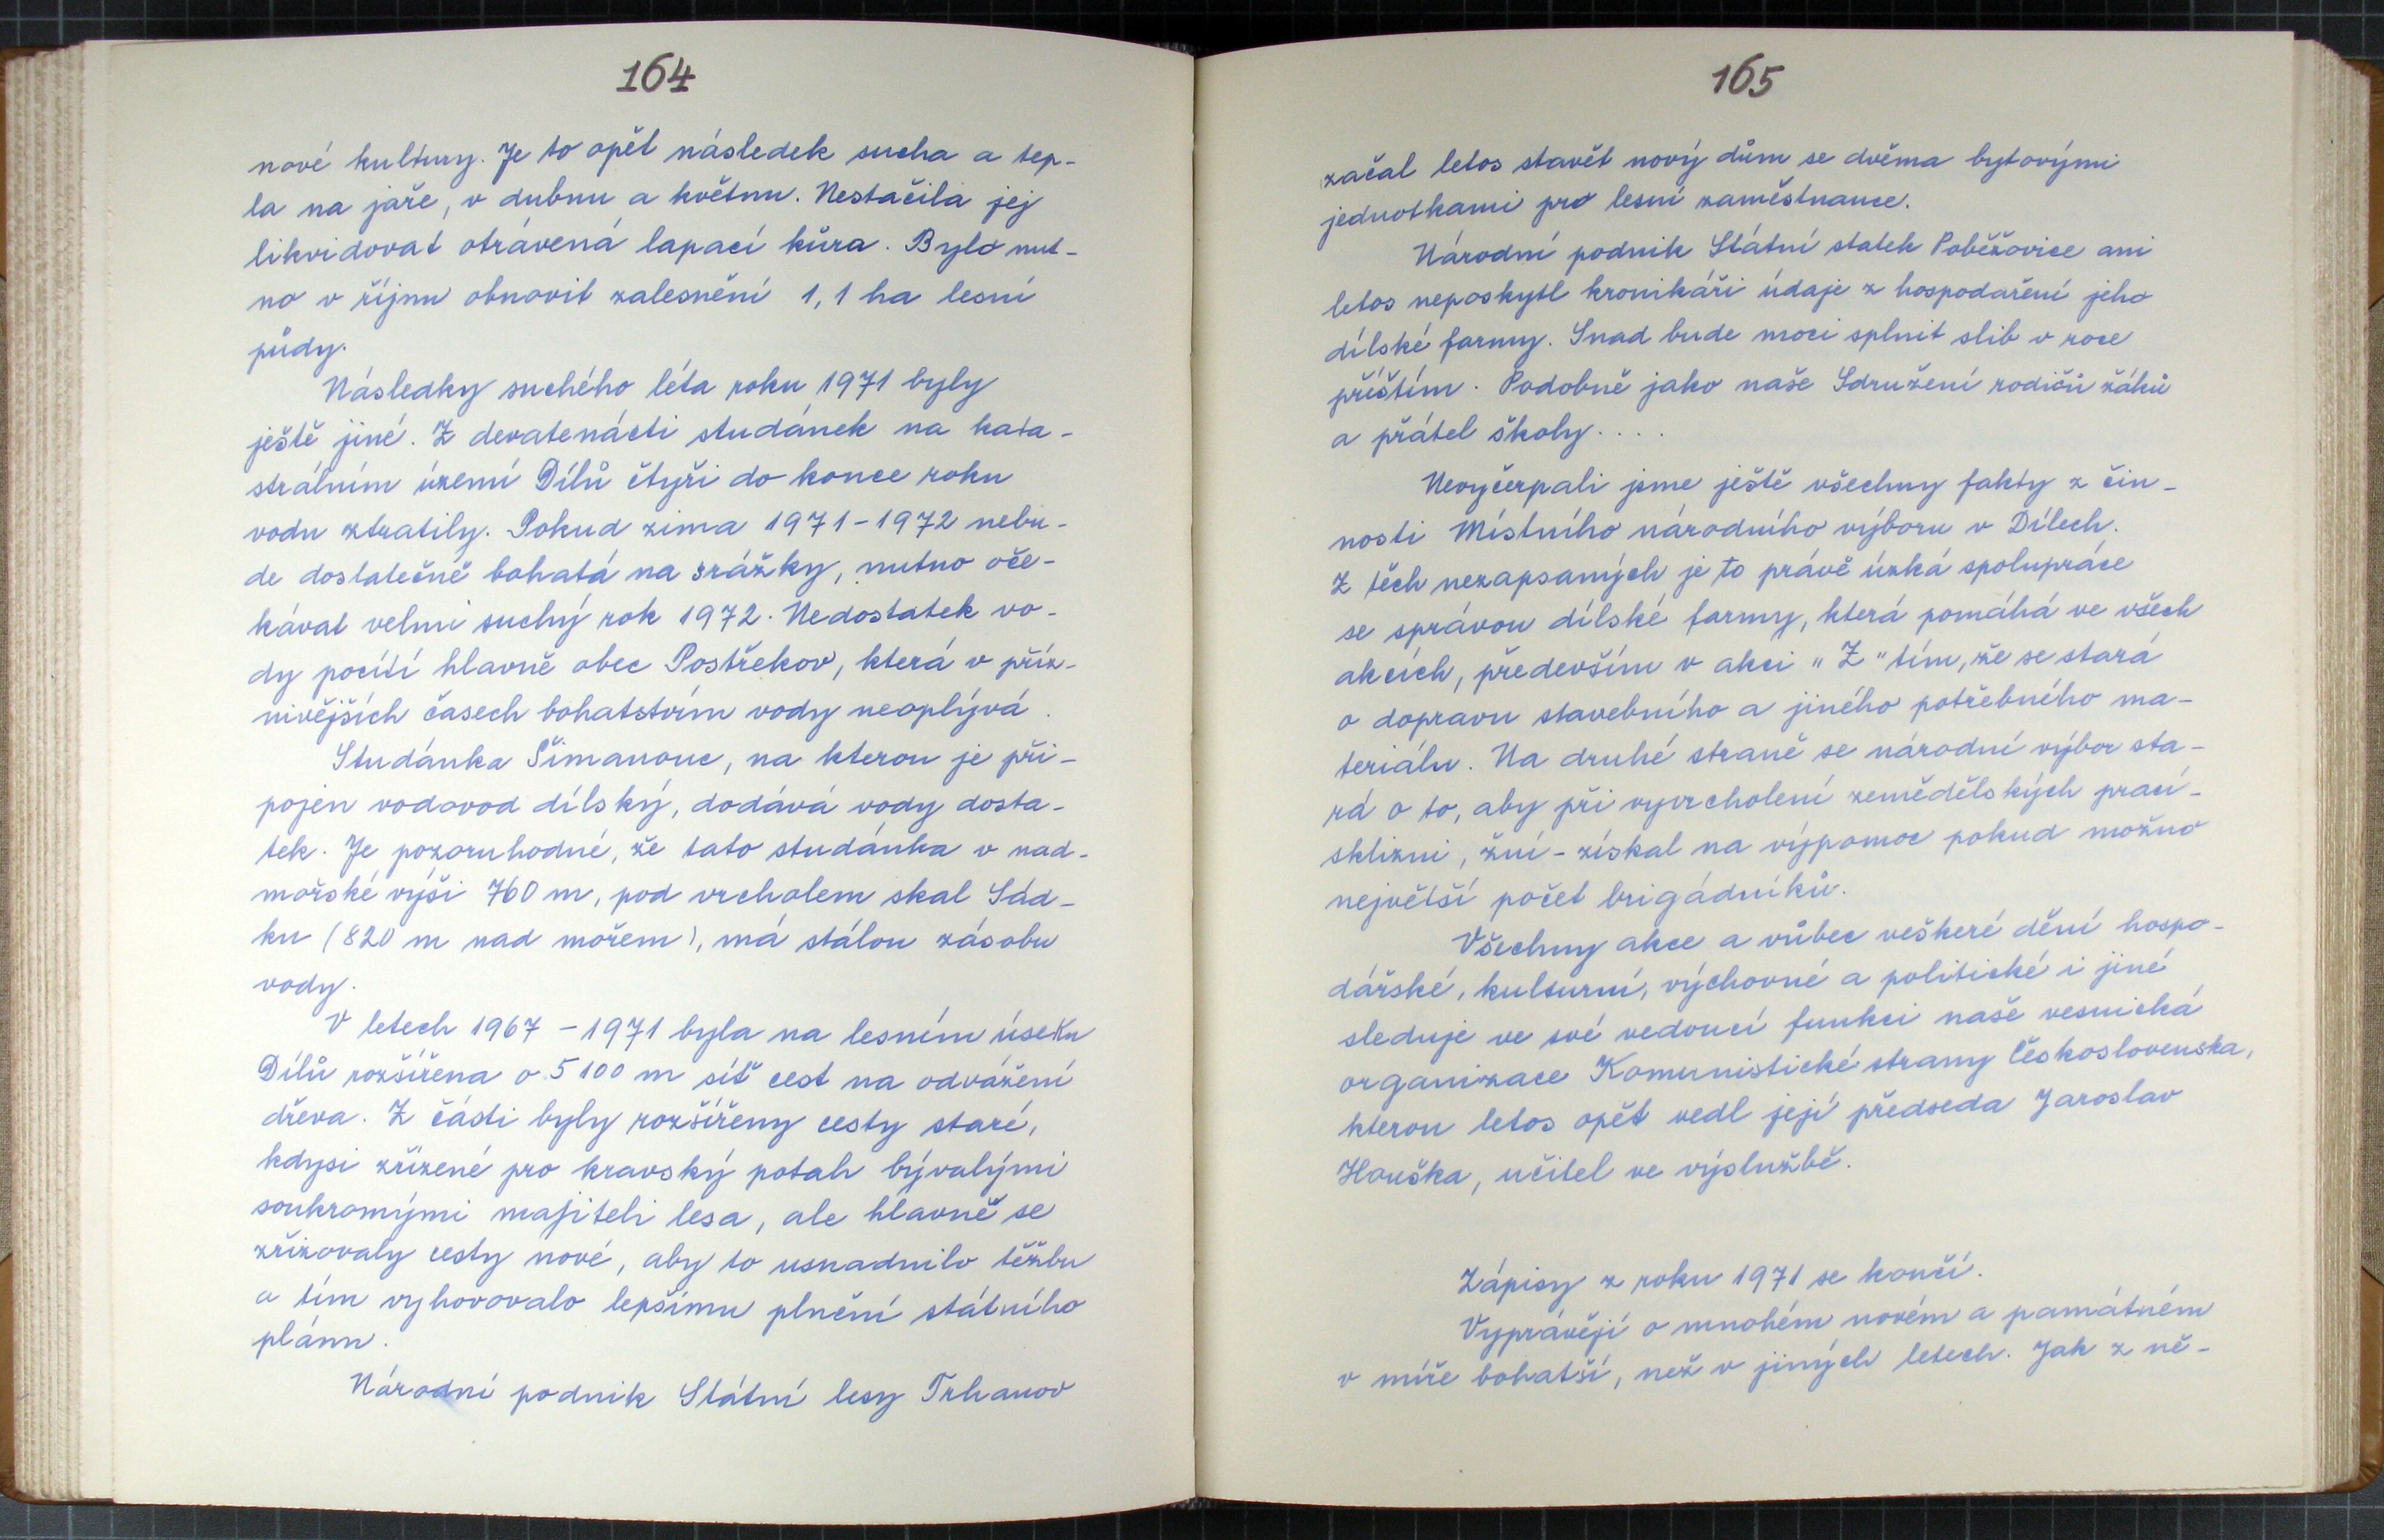 164
nové kultury. Je to opět následek sucha a tep-
la na jaře, v dubnu a květnu. Nestačila jej
likvidovat otrávená lapací kůra. Bylo nut-
no v říjnu obnovit zalesnění 1,1 ha lesní
půdy.
Následky suchého léta roku 1971 byly
ještě jiné. Z devatenácti studánek na kata-
strálním území Dílů čtyři do konce roku
vodu ztratily. Pokud zima 1971-1972 nebu-
de dostatečně bohatá na srážky, nutno oče-
kávat velmi suchý rok 1972. Nedostatek vo-
dy pocítí hlavně obec Postřekov, která v příz-
nivějších časech bohatstvím vody neoplývá.
Studánka Šimanouc, na kterou je při-
pojen vodovod dílský, dodává vody dosta-
tek. Je pozoruhodné, že tato studánka v nad-
mořské výši 760 m, pod vrcholem skal Sád-
ku (820 m nad mořem), má stálou zásobu
vody.
V letech 1967 - 1971 byla na lesním úseku
Dílů rozšířena o 5100 m síť cest na odvážení
dřeva. Z části byly rozšířeny cesty staré,
kdysi zřízené pro kravský potah bývalými
soukromými majiteli lesa, ale hlavně se
zřizovaly cesty nové, aby to usnadnilo těžbu
a tím vyhovovalo lepšímu plnění státního
plánu.
Národní podnik Státní lesy Trhanov
165
začal letos stavět nový dům se dvěma bytovými
jednotkami pro lesní zaměstnance.
Národní podnik Státní statek Poběžovice ani
letos neposkytl kronikáři údaje z hospodaření jeho
dílské farmy. Snad bude moci splnit slib v roce
příštím. Podobně jako naše Sdružení rodičů žáků
a přátel školy....
Nevyčerpali jsme ještě všechny fakty z čin-
nosti Místního národního výboru v Dílech.
Z těch nezapsaných je to právě úzká spolupráce
se správou dílské farmy, která pomáhá ve všech
akcích, především v akci "Z" tím, že se stará
o dopravu stavebního a jiného potřebného ma-
teriálu. Na druhé straně se národní výbor sta-
rá o to, aby při vyvrcholení zemědělských prací -
sklizni, žní - získal na výpomoc pokud možno
největší počet brigádníků.
Všechny akce a vůbec veškeré dění hospo-
dářské, kulturní, výchovné a politické i jiné
sleduje ve své vedoucí funkci naše vesnická
organizace Komunistické strany Československa,
kterou letos opět vedl její předseda Jaroslav
Houška, učitel ve výslužbě.
Zápisy z roku 1971 se končí.
Vyprávějí o mnohém novém a památném
v míře bohatší, než v jiných letech. Jak z ně-